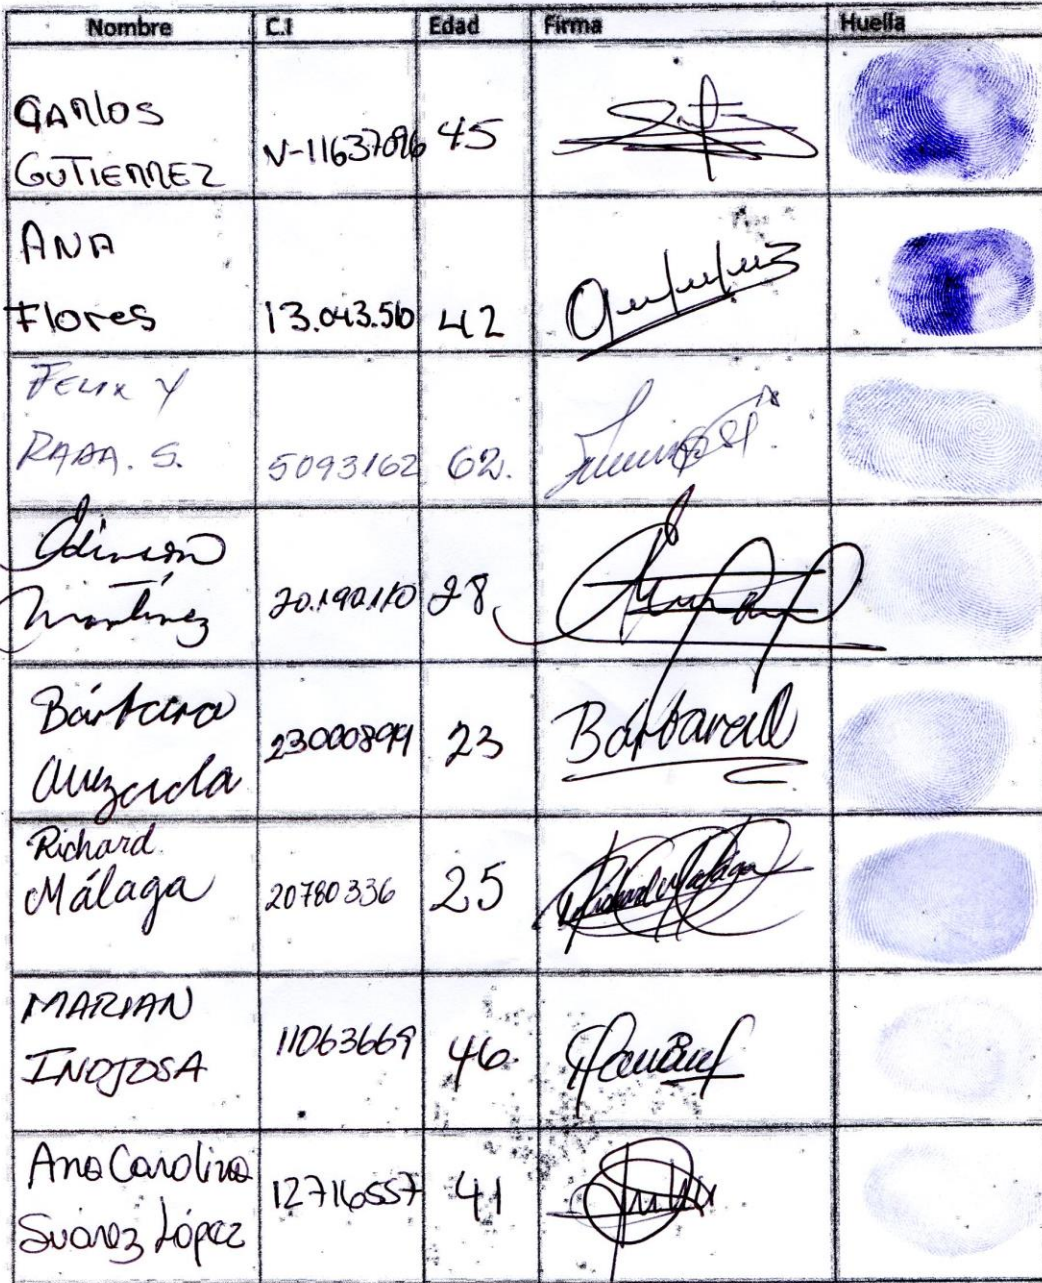 Nombre C.I Edad Firma Huella
CARLOS
GUTIERREZ V-11637096 45
ANA
Flores 13.043.510 42
FELIX Y
RADA. S. 5093162 62.
Martínez 20.192.110 28
Bárbara Bárbara
Quezada 23000899 23
Richard
Málaga 20780336 25 Richard Málaga
MARIAN
INOJOSA 11063669 46.
Ana Carolina
Suárez López 12716557 41